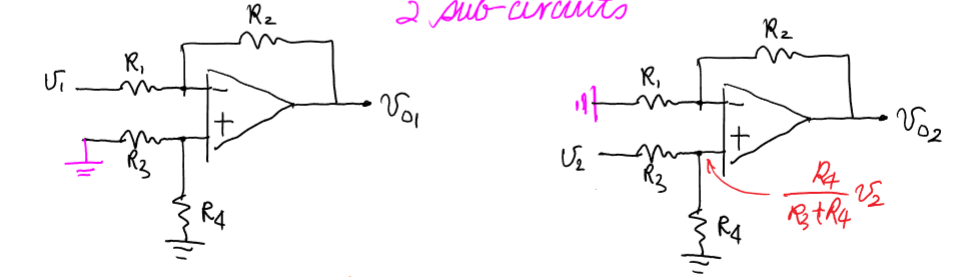 2 sub-circuits
R₂
R₁
υ₁
−
+
υ₀₁
R₃
R₄
R₂
R₁
−
+
υ₀₂
υ₂
R₃
R₄
R₄/(R₃+R₄) υ₂